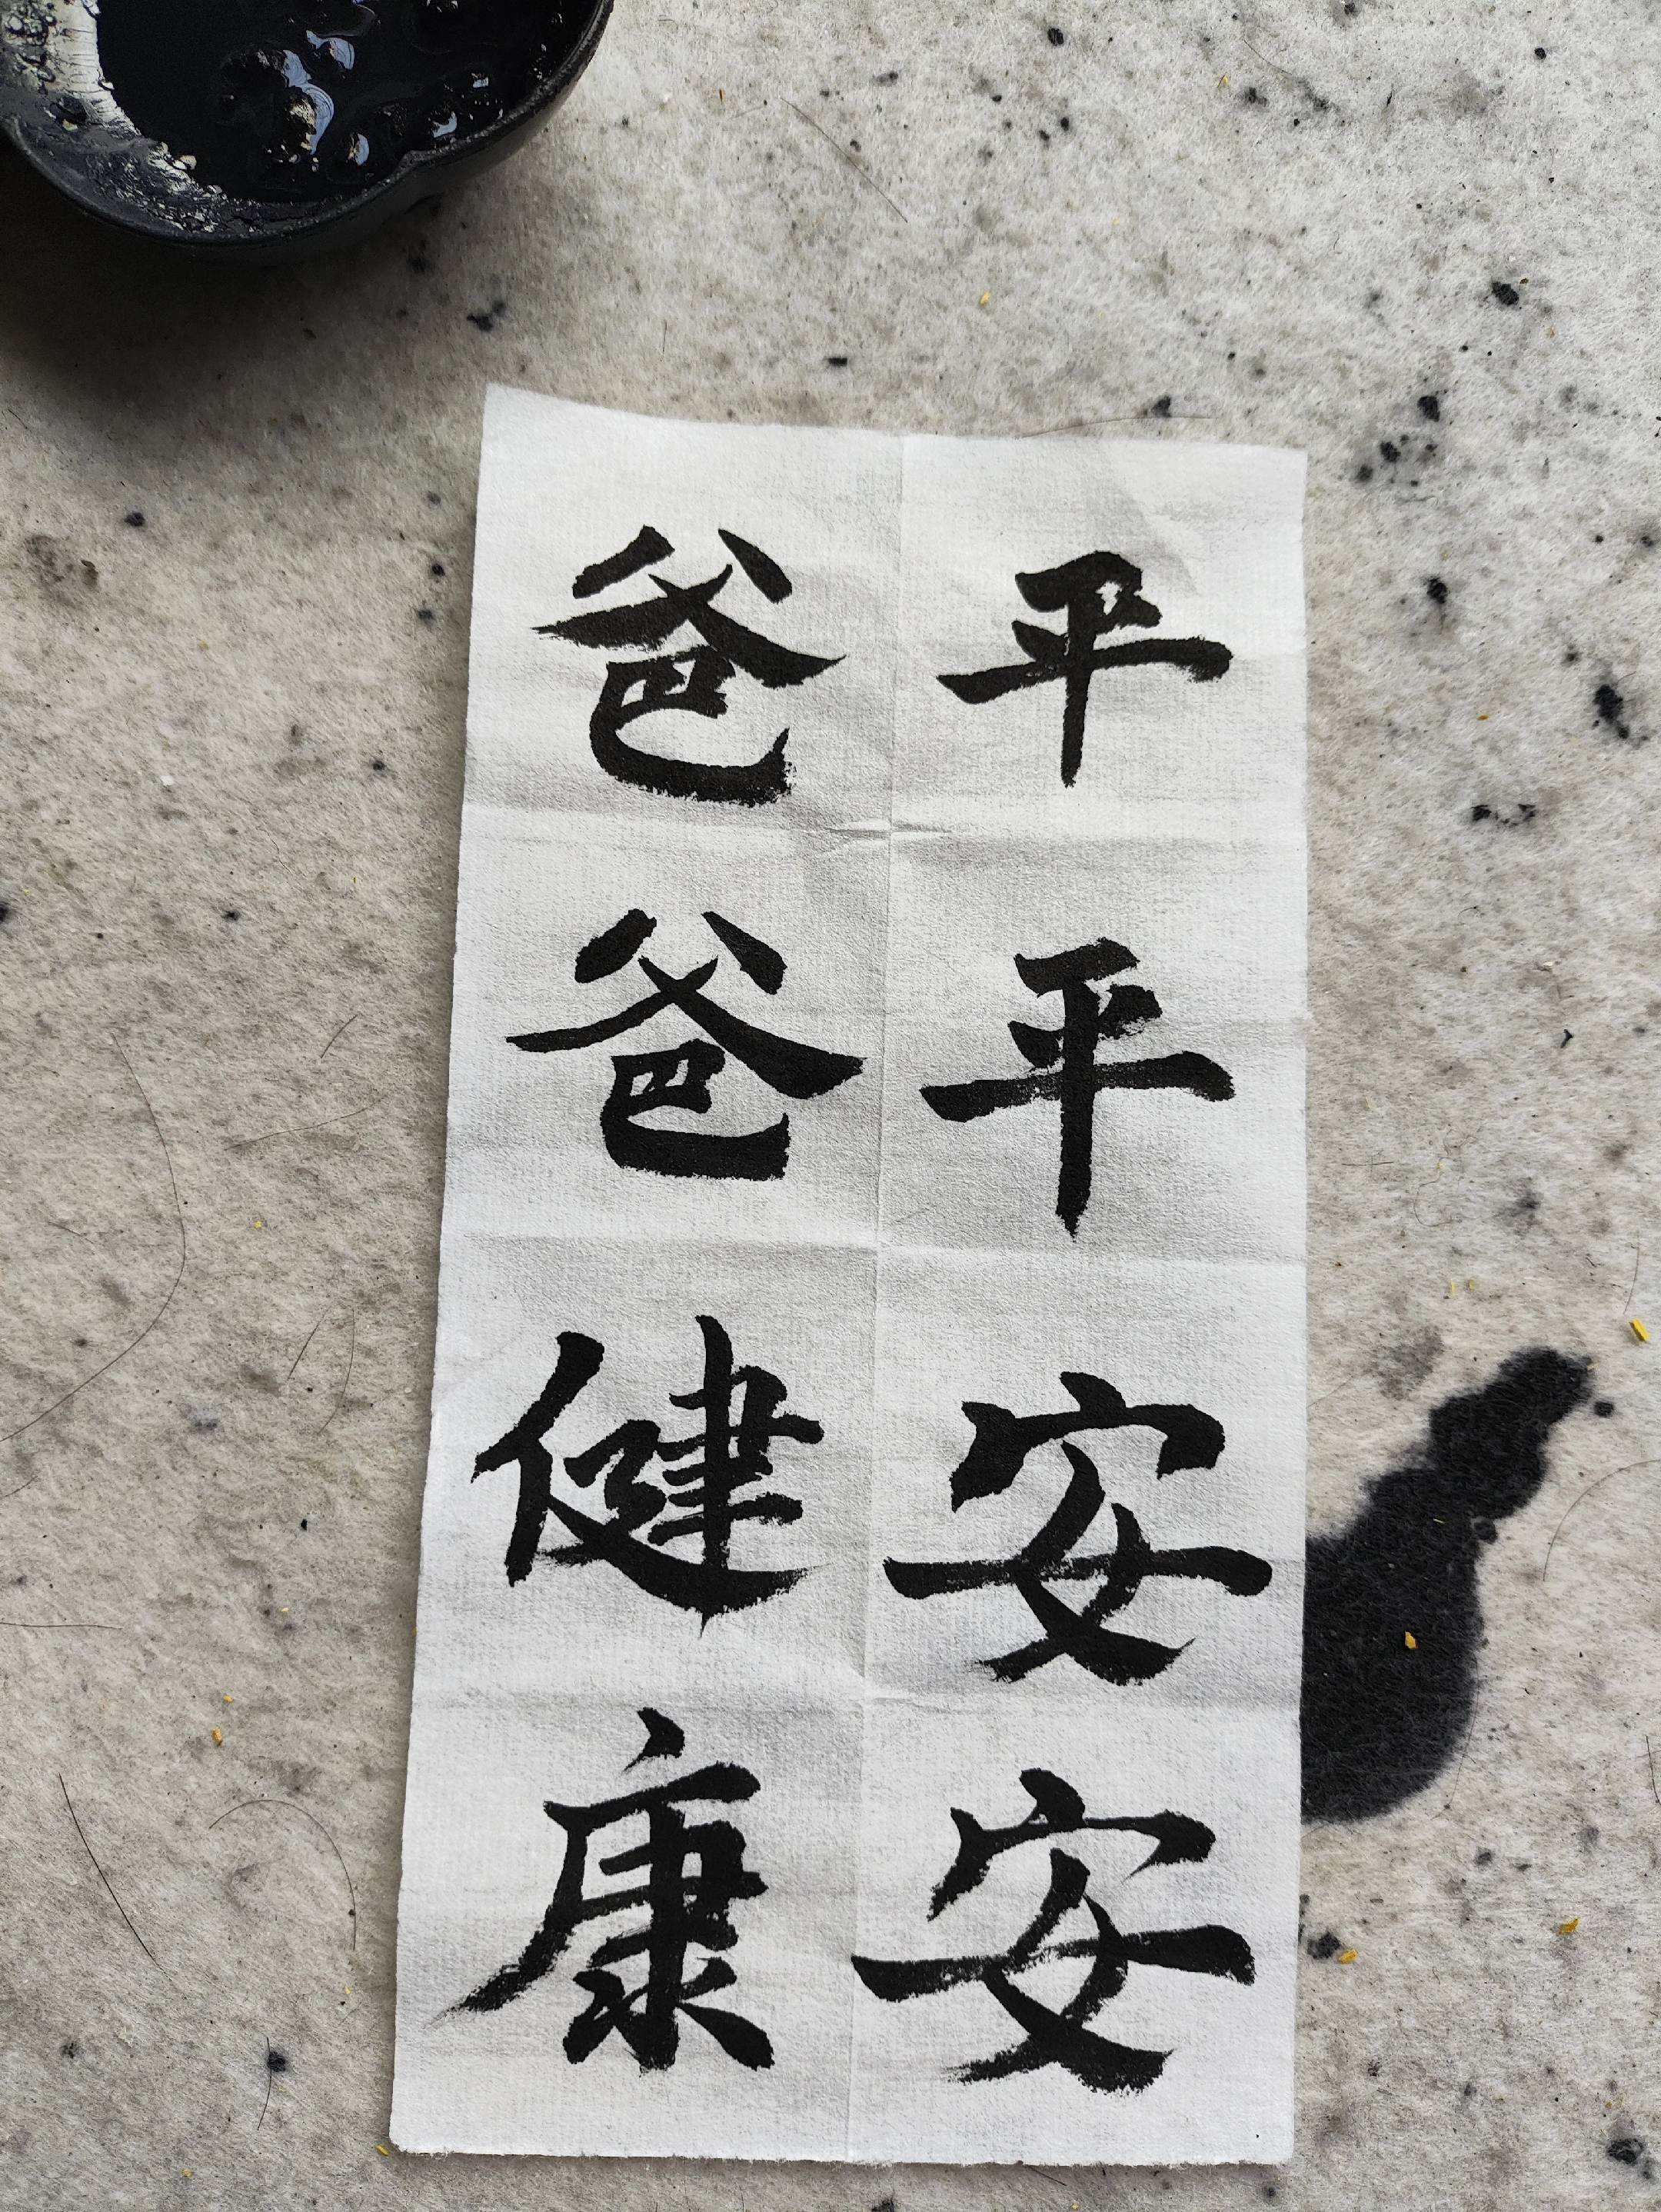 平平安安
爸爸健康